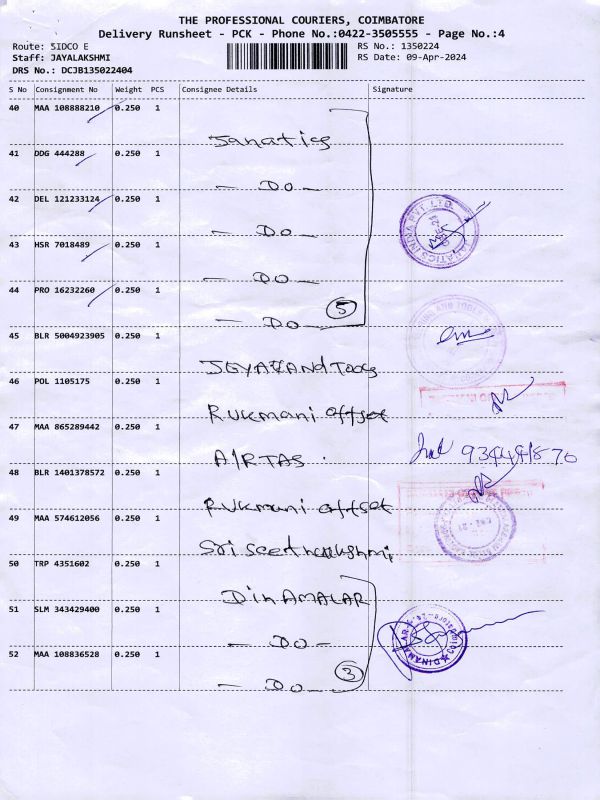 THE PROFESSIONAL COURIERS, COIMBATORE
Delivery Runsheet - PCK - Phone No.:0422-3505555 - Page No.:4
Route: SIDCO E
Staff: JAYALAKSHMI
DRS No.: DCJB135022404
RS No.: 1350224
RS Date: 09-Apr-2024
S No Consignment No Weight PCS Consignee Details Signature
40 MAA 108888210 0.250 1
Janatics
41 DDG 444288 0.250 1
— DO —
42 DEL 121233124 0.250 1
— DO —
43 HSR 7018489 0.250 1
— DO —
44 PRO 16232260 0.250 1
— DO — 5
45 BLR 5004923905 0.250 1
46 POL 1105175 0.250 1
Rukmani offset
47 MAA 865289442 0.250 1
AIRTAS.
48 BLR 1401378572 0.250 1
Rukmani offset
49 MAA 574612056 0.250 1
50 TRP 4351602 0.250 1
DINAMALAR
51 SLM 343429400 0.250 1
— DO —
52 MAA 108836528 0.250 1
— DO — 3
DINAMALAR